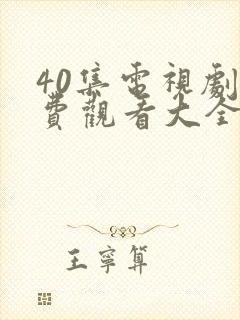 40集電視劇
費觀看大全
王寧算